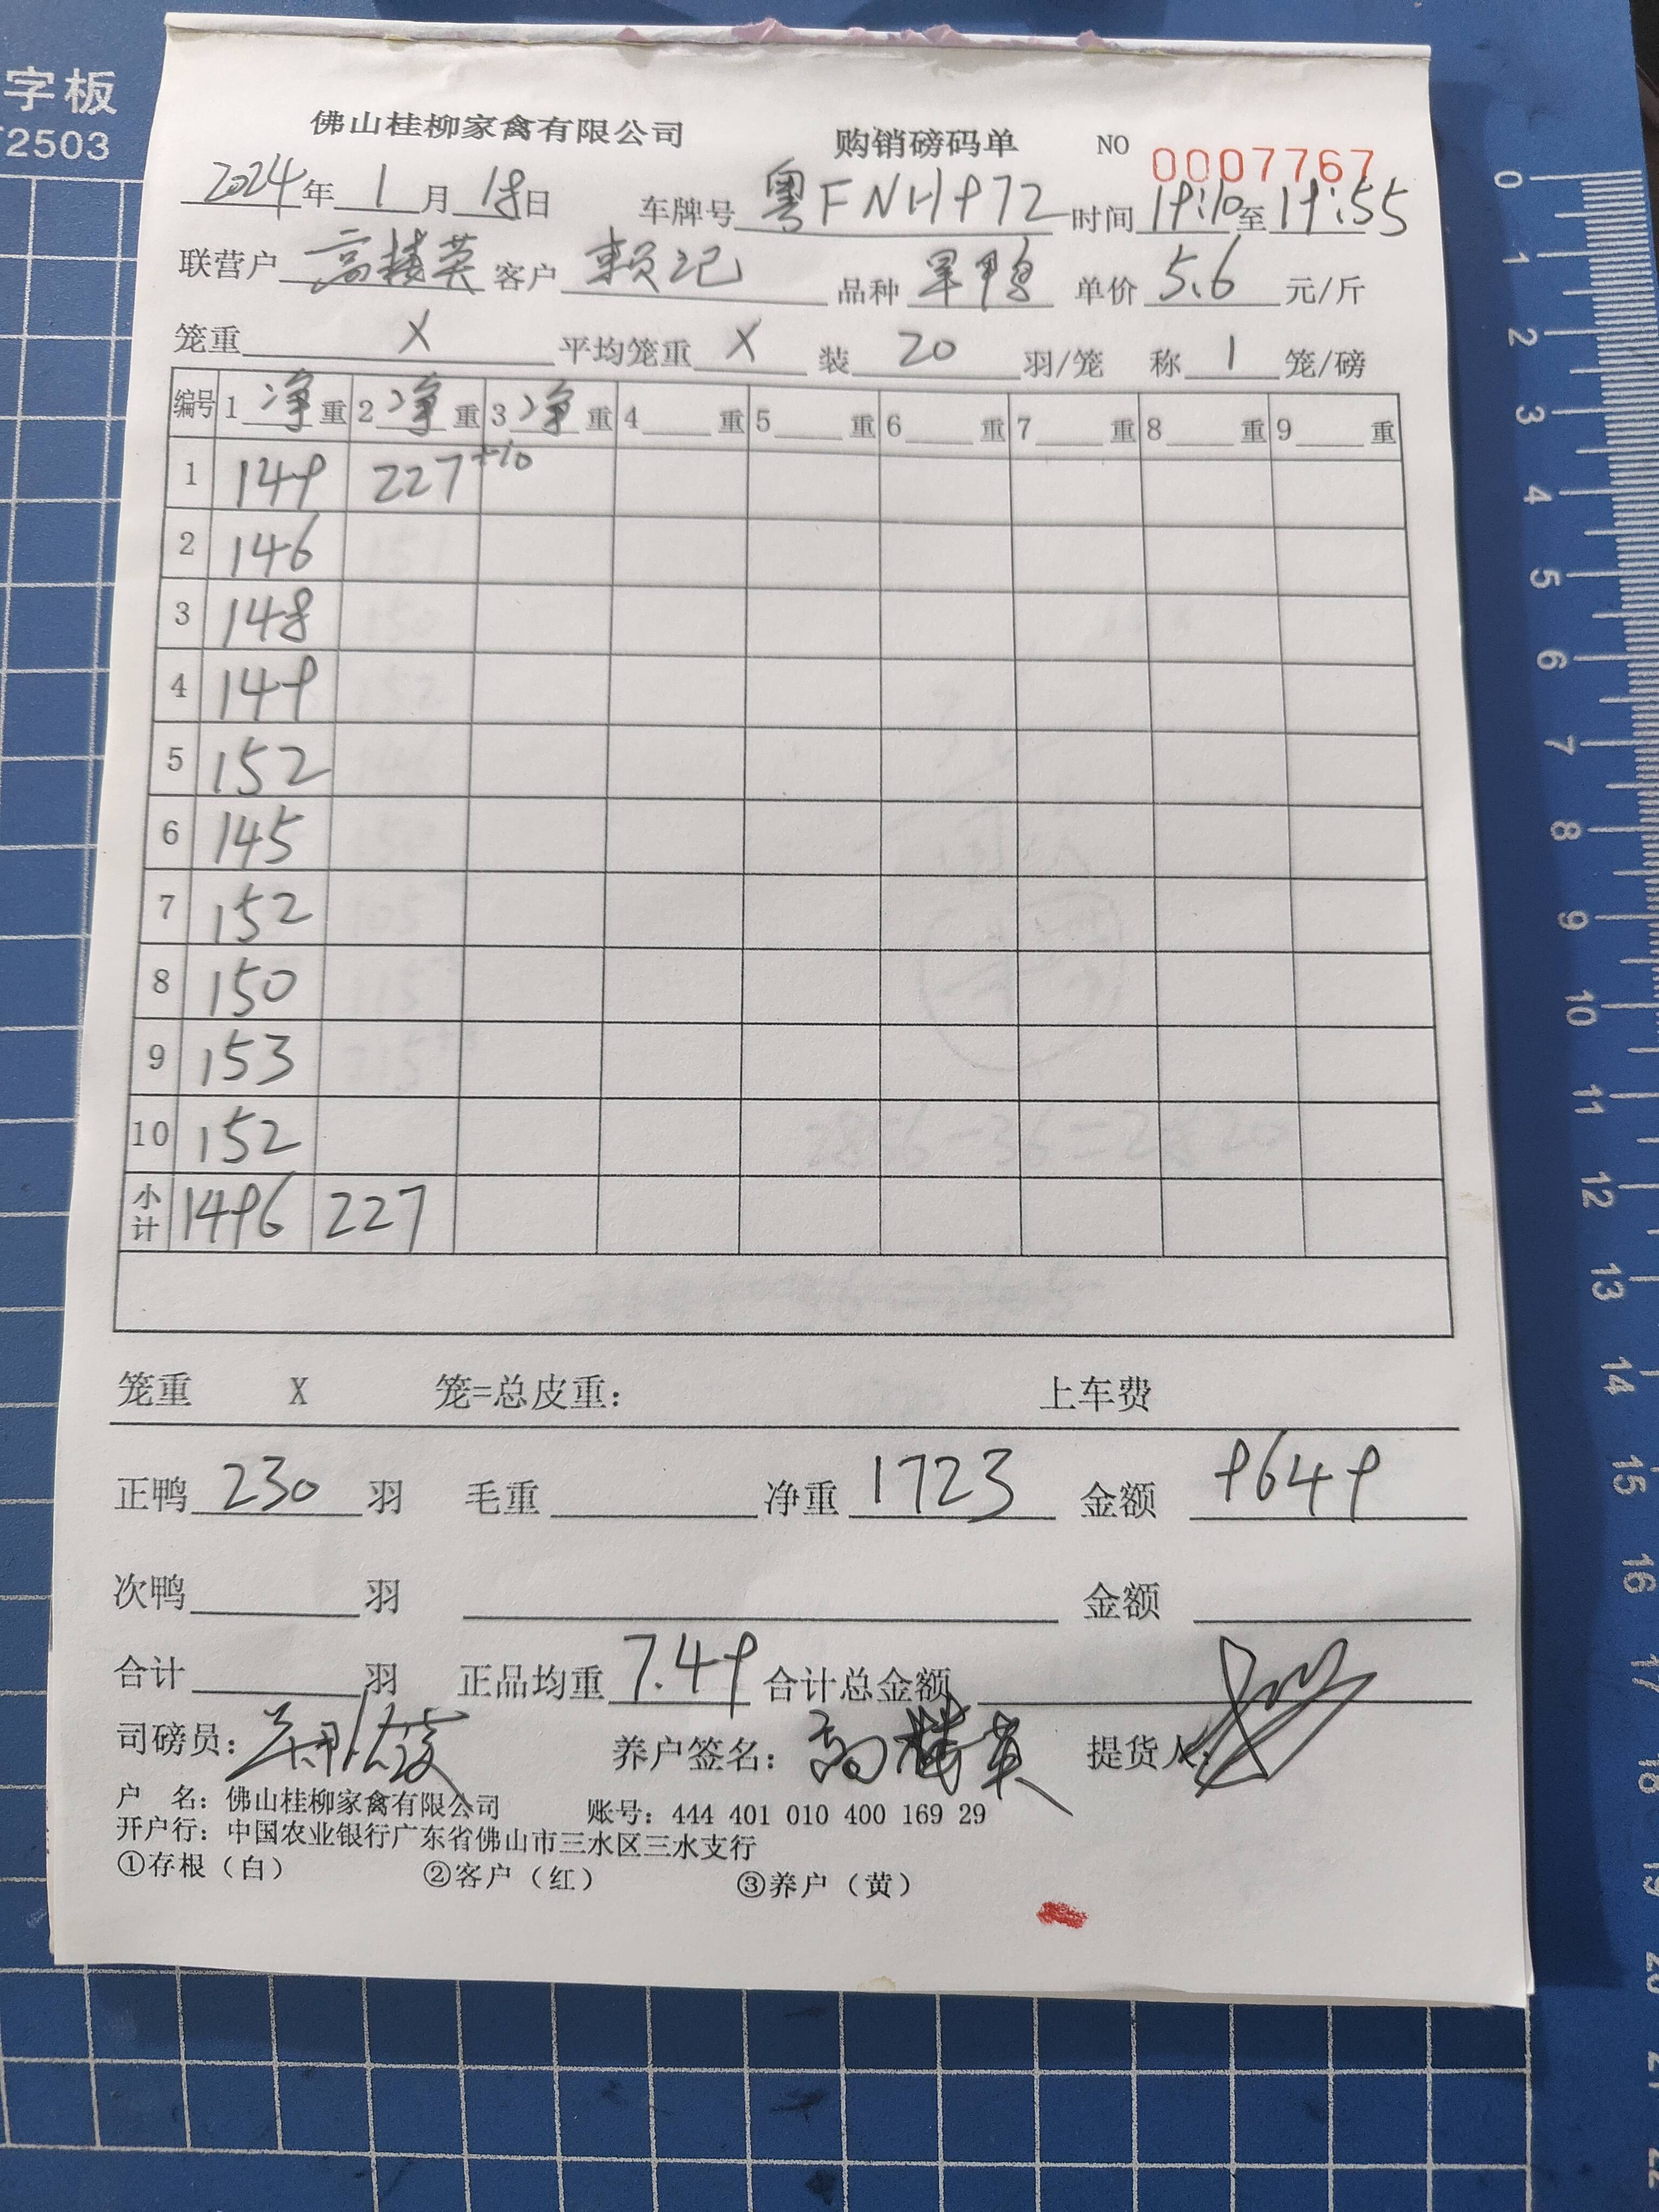 字板
T2503
佛山桂柳家禽有限公司 购销磅码单 NO 0007767
2024年 1月 18日 车牌号 粤FNH972 时间 19:10至19:55
联营户 高楼英 客户 赖记 品种 旱鸭 单价 5.6 元/斤
笼重 X 平均笼重 X 装 20 羽/笼 称 1 笼/磅
编号 1 净 重 2 净 重 3 净 重 4 重 5 重 6 重 7 重 8 重 9 重
1 149 227
2 146
3 148
4 149
5 152
6 145
7 152
8 150
9 153
10 152
小计 1496 227
笼重 X 笼=总皮重： 上车费
正鸭 230 羽 毛重 净重 1723 金额 9649
次鸭 羽 金额
合计 羽 正品均重 7.49 合计总金额
司磅员： 养户签名：高楼英 提货人：
户 名：佛山桂柳家禽有限公司 账号：444 401 010 400 169 29
开户行：中国农业银行广东省佛山市三水区三水支行
①存根（白） ②客户（红） ③养户（黄）
0
1
2
3
4
5
6
7
8
9
10
11
12
13
14
15
16
17
18
19
20
21
22